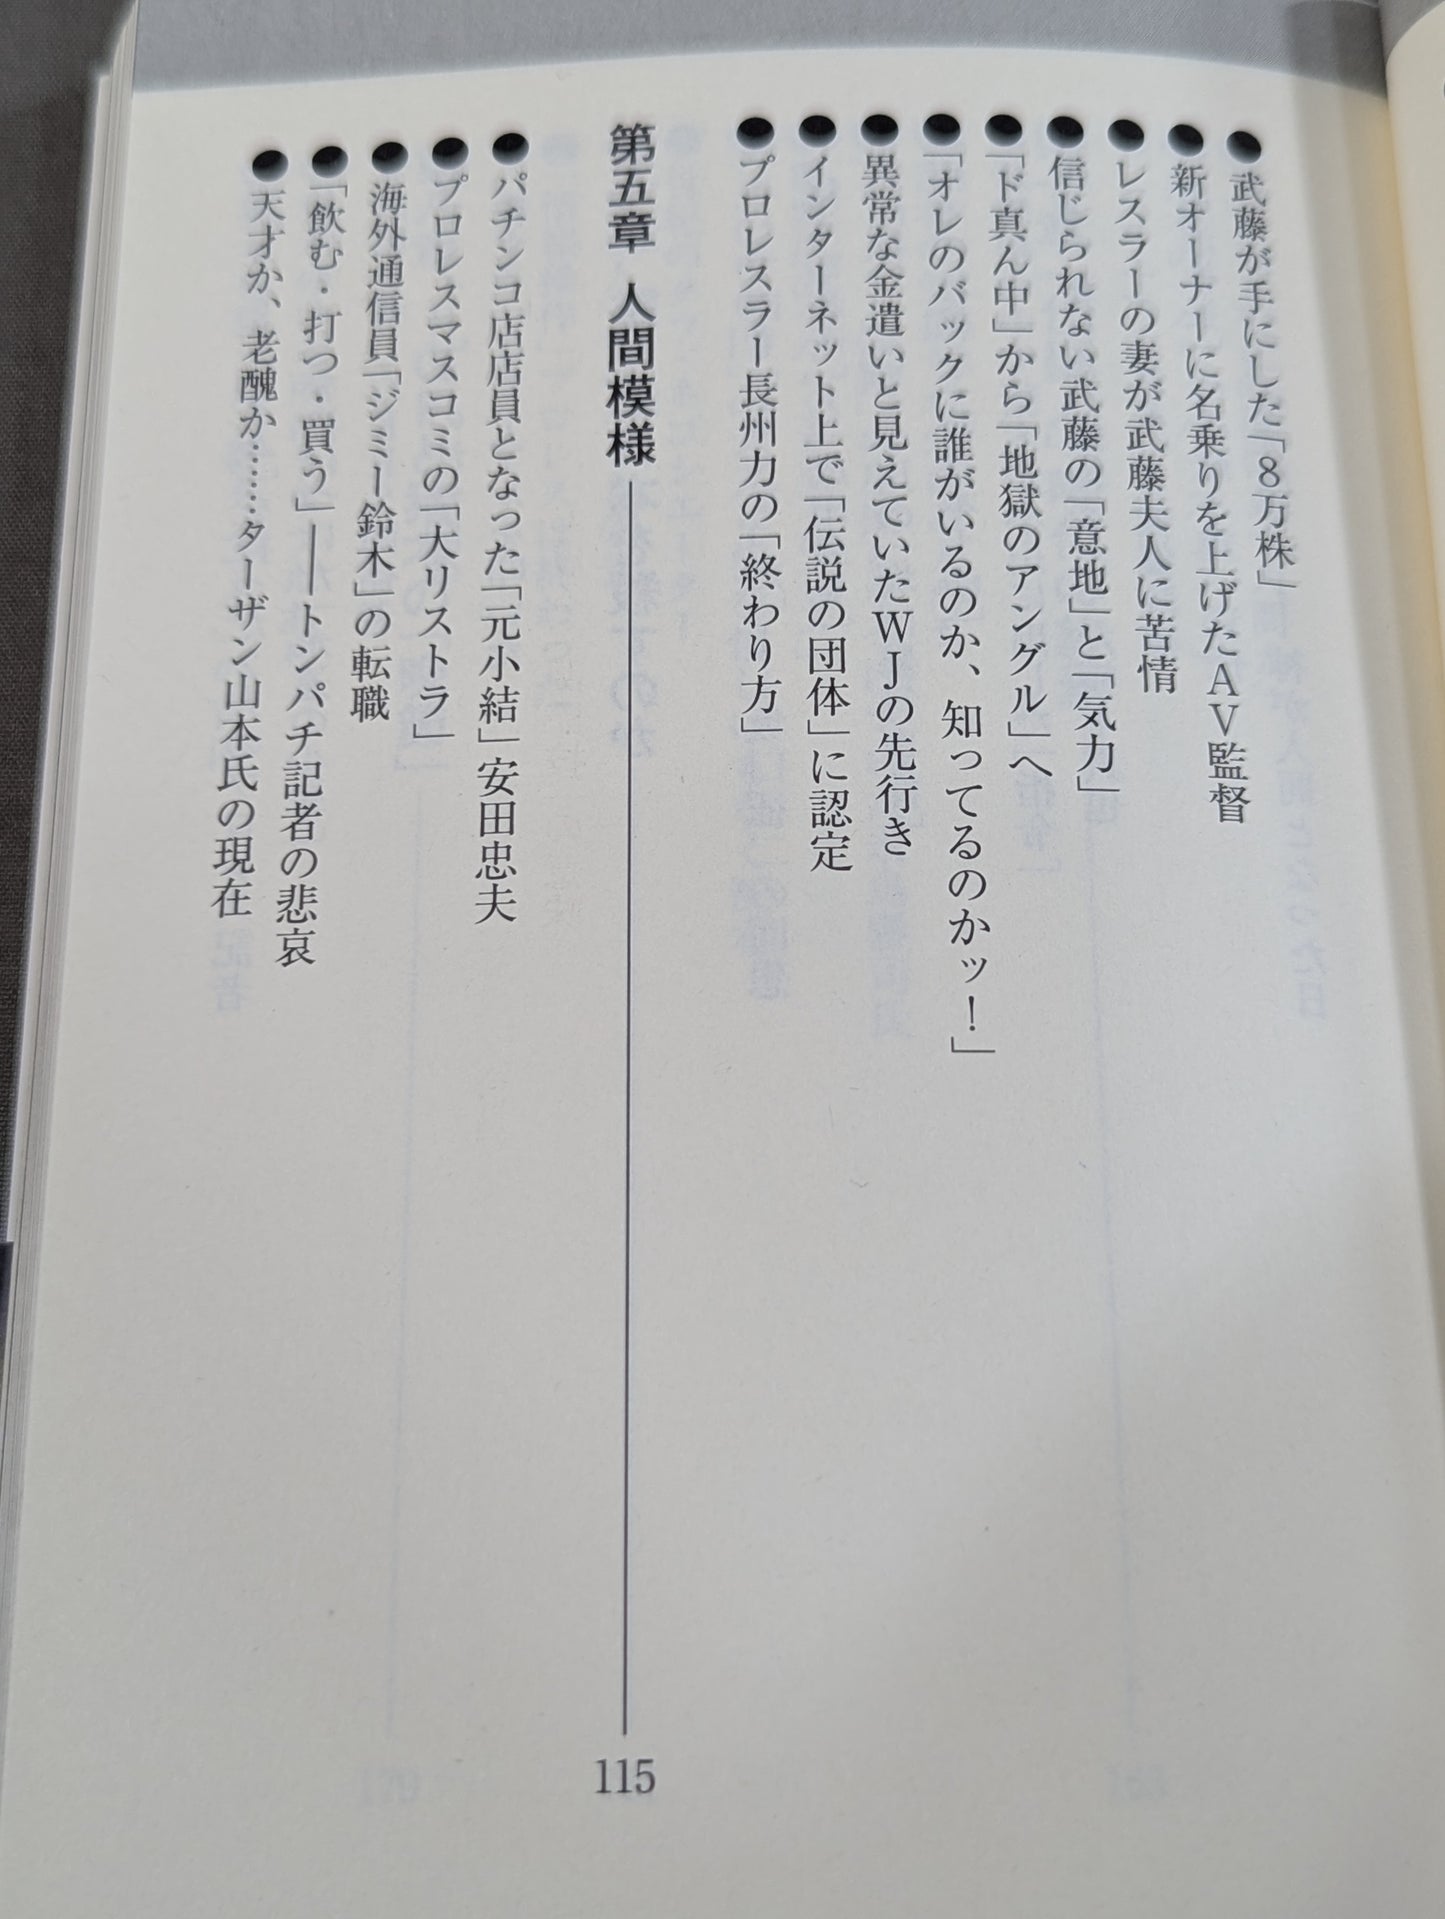 ●武藤が手にした「８万株」
●新オーナーに名乗りを上げたＡＶ監督
●レスラーの妻が武藤夫人に苦情
●信じられない武藤の「意地」と「気力」
●「ド真ん中」から「地獄のアングル」へ
●「オレのバックに誰がいるのか、知ってるのかッ！」
●異常な金遣いと見えていたＷＪの先行き
●インターネット上で「伝説の団体」に認定
●プロレスラー長州力の「終わり方」
第五章 人間模様 ――― 115
●パチンコ店店員となった「元小結」安田忠夫
●プロレスマスコミの「大リストラ」
●海外通信員「ジミー鈴木」の転職
●「飲む・打つ・買う」――トンパチ記者の悲哀
●天才か、老醜か……ターザン山本氏の現在